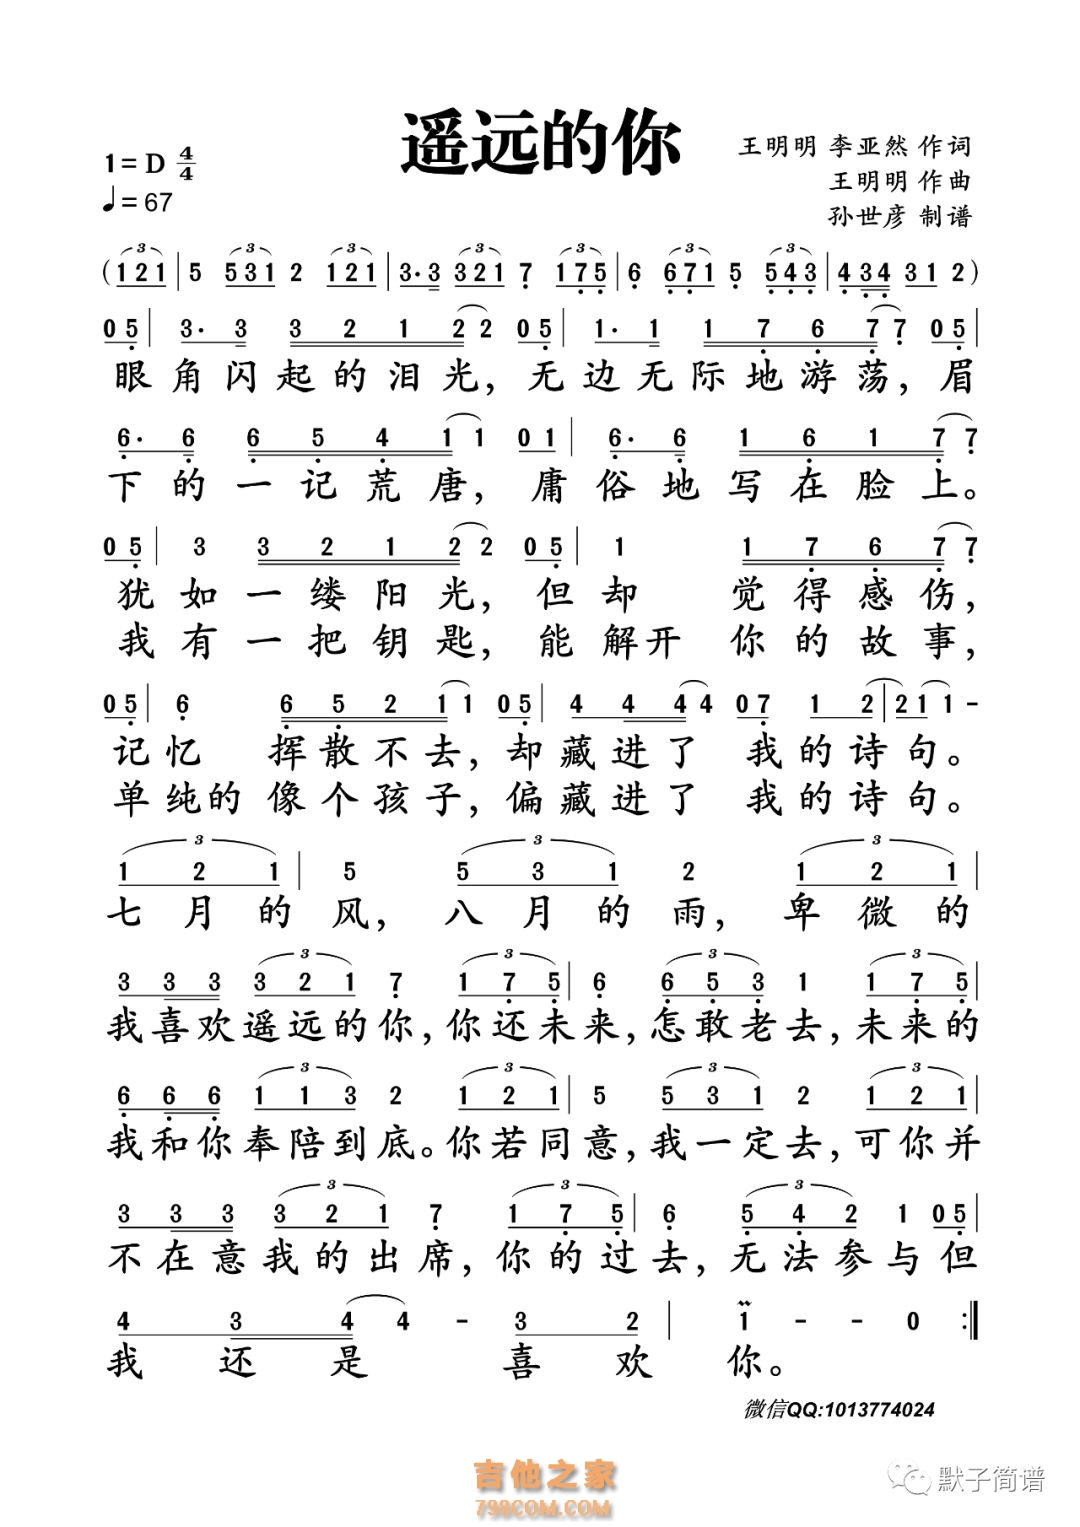 遥远的你
1=D 4/4
♩=67
王明明 李亚然 作词
王明明 作曲
孙世彦 制谱
(121|5 531 2 121|3·3 321 7 175|6 671 5 543|434 312)
05|3· 3 3 2 1 2 2 05|1· 1 1 7 6 7 7 05|
眼角闪起的泪光，无边无际地游荡，眉
6· 6 6 5 4 1 1 01|6· 6 1 6 1 7 7
下的一记荒唐，庸俗地写在脸上。
05|3 3 2 1 2 2 05|1 1 7 6 7 7
犹如一缕阳光，但却 觉得感伤，
我有一把钥匙，能解开 你的故事，
05|6 6 5 2 1 1 05|4 4 4 4 07 1 2|21 1 -
记忆 挥散不去，却藏进了 我的诗句。
单纯的像个孩子，偏藏进了 我的诗句。
3 3 3
1 2 1|5 5 3 1 2 1 2 1|
七月的风，八月的雨，卑微的
3 3 3 3
3 3 3 3 2 1 7 1 7 5|6 6 5 3 1 1 7 5|
我喜欢遥远的你，你还未来，怎敢老去，未来的
3 3 3 3
6 6 6 1 1 3 2 1 2 1|5 5 3 1 2 1 2 1|
我和你奉陪到底。你若同意，我一定去，可你并
3 3 3
3 3 3 3 2 1 7 1 7 5|6 5 4 2 1 05|
不在意我的出席，你的过去，无法参与但
4 3 4 4 - 3 2|1 - - 0:|
我还是喜欢你。
微信QQ:1013774024
吉他之家
798COM.COM
默子简谱